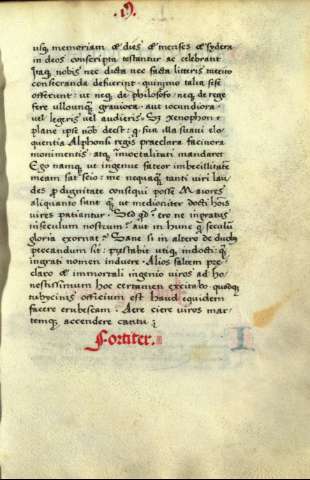 .19.
usq; memoriam & dies & menses & sydera
in deos conscripta testantur ac celebrant
Itaq; nobis nec dicta nec facta literis
consecranda defuerint. quinimo talia sese
offerunt: ut neq; de philosofo. neq; de rege
fere ullo unq̃ graviora. aut iocundiora.
vel legeris vel audieris. Sz xenophon e
plane ipse nob̃ deest: q sua illa suavi elo
quentia Alphonsi regis praeclara facinora
monimentis atq; im̃ortalitati mandaret
Ego namq; ut ingenue fatear imbecillitate
meam sat scio: me nequaq̃ tanti viri lau
des p dignitate consequi posse Maiores
aliquanto sunt q̃ ut mediocriter docti hoĩs
vires patiantur. Sed qd. ero ne ingratus
in seculum nostrum. aut in hunc q seculũ
gloria exornat? Sane si in altero de duob;
peccandum sit: prestabit utiq; indocti: q̃
ingrati nomen induere. Alios saltem pre
claro & immortali ingenio viros ad ho
nestissimum hoc certamen excitabo quodq;
tubycinis officium est haud equidem
facere erubescam. Aere ciere viros mar
temq; accendere cantu:
Fortiter.
I